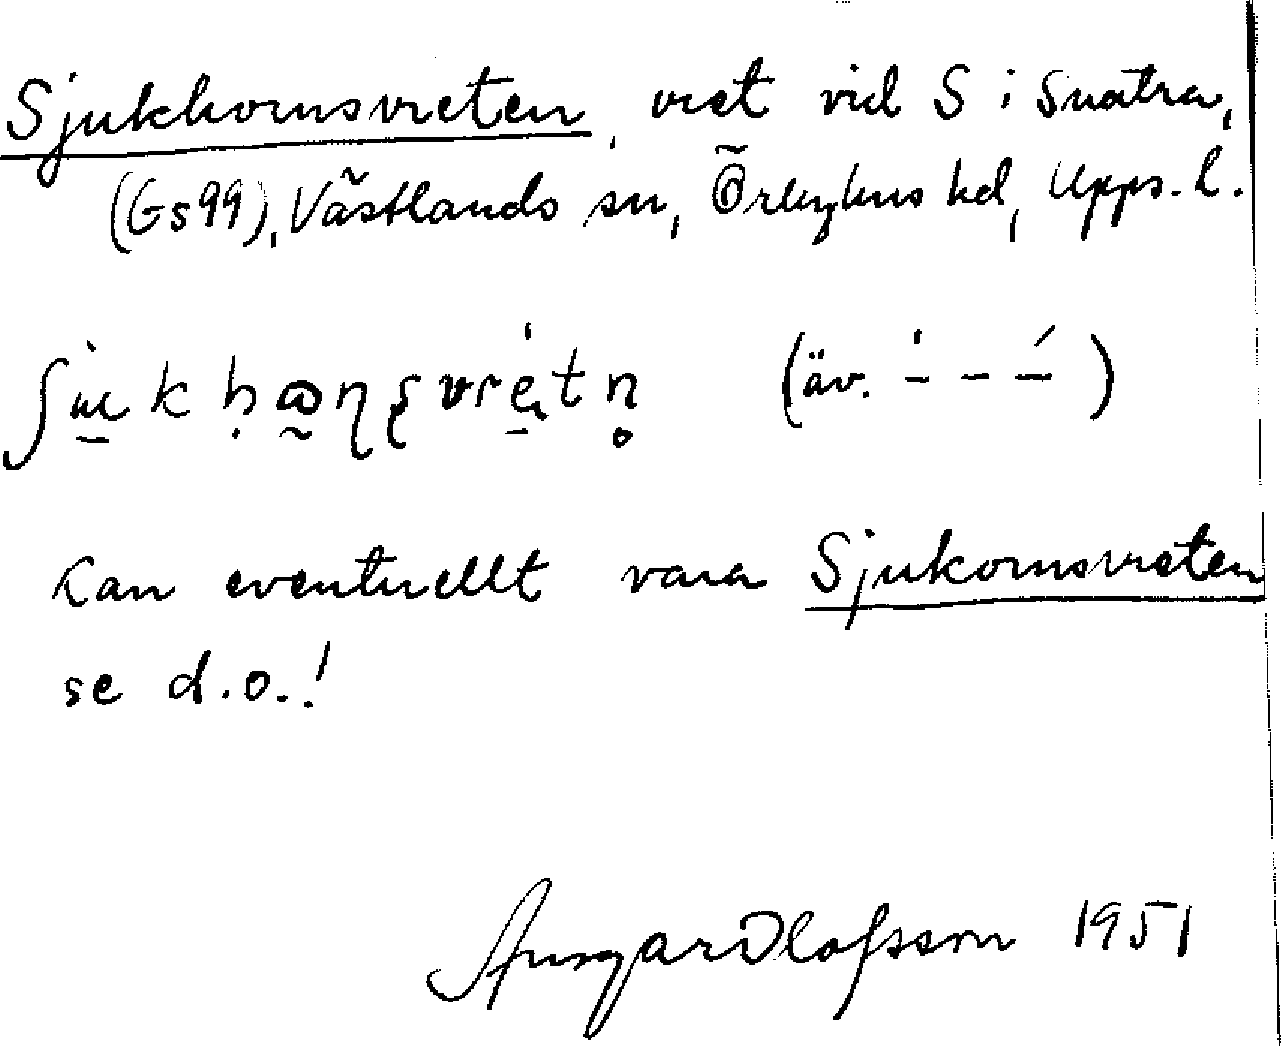 Sjukhornsvreten, vret vid S i Snatra,
(Gs99), Västlands sn, Örbyhus hd, Upps. l.
(äv. ˈ– – –́)
Kan eventuellt vara Sjukornsvreten
se d.o.!
Ansgar Olofsson 1951